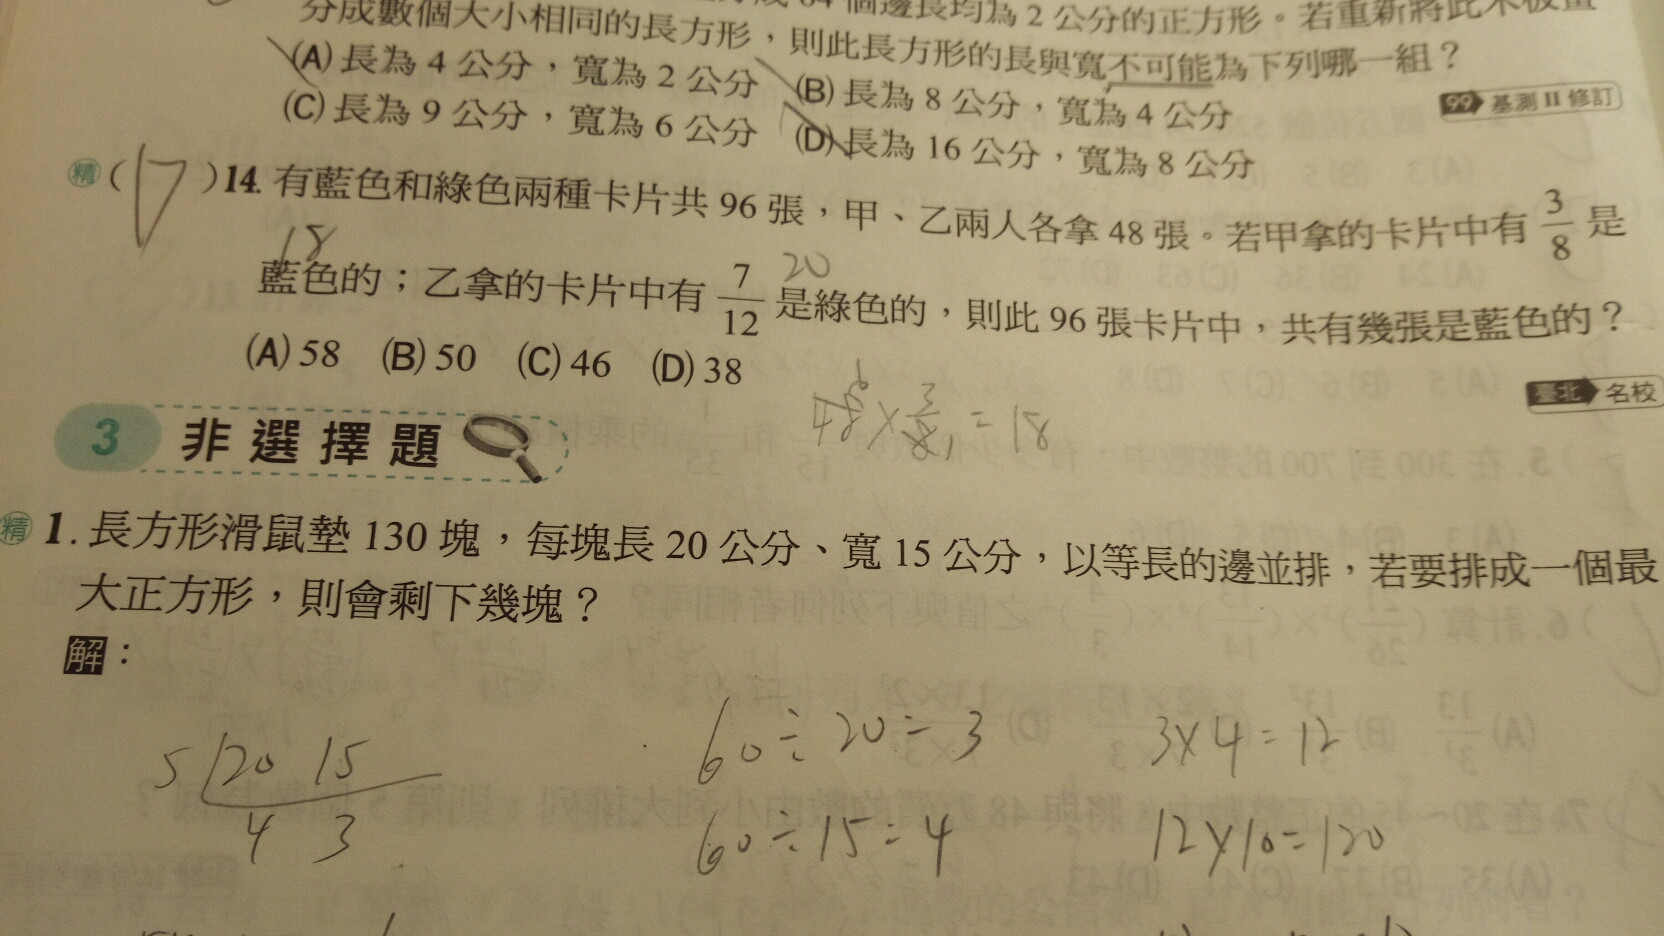 個邊長均為 2 公分的正方形。若重新將此木板畫
分成數個大小相同的長方形，則此長方形的長與寬不可能為下列哪一組？
(A) 長為 4 公分，寬為 2 公分 (B) 長為 8 公分，寬為 4 公分
(C) 長為 9 公分，寬為 6 公分 (D) 長為 16 公分，寬為 8 公分
99 基測 II 修訂
精 ( D ) 14. 有藍色和綠色兩種卡片共 96 張，甲、乙兩人各拿 48 張。若甲拿的卡片中有 3/8 是
18
藍色的；乙拿的卡片中有 7/12 是綠色的，則此 96 張卡片中，共有幾張是藍色的？
20
(A) 58 (B) 50 (C) 46 (D) 38
臺北 名校
6
48 × 3/8 = 18
1
3 非選擇題
精 1. 長方形滑鼠墊 130 塊，每塊長 20 公分、寬 15 公分，以等長的邊並排，若要排成一個最
大正方形，則會剩下幾塊？
解：
5 20 15
4 3
60÷20=3
60÷15=4
3×4=12
12×10=120